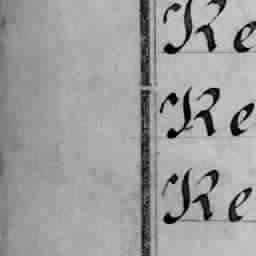 Re
Re
Re